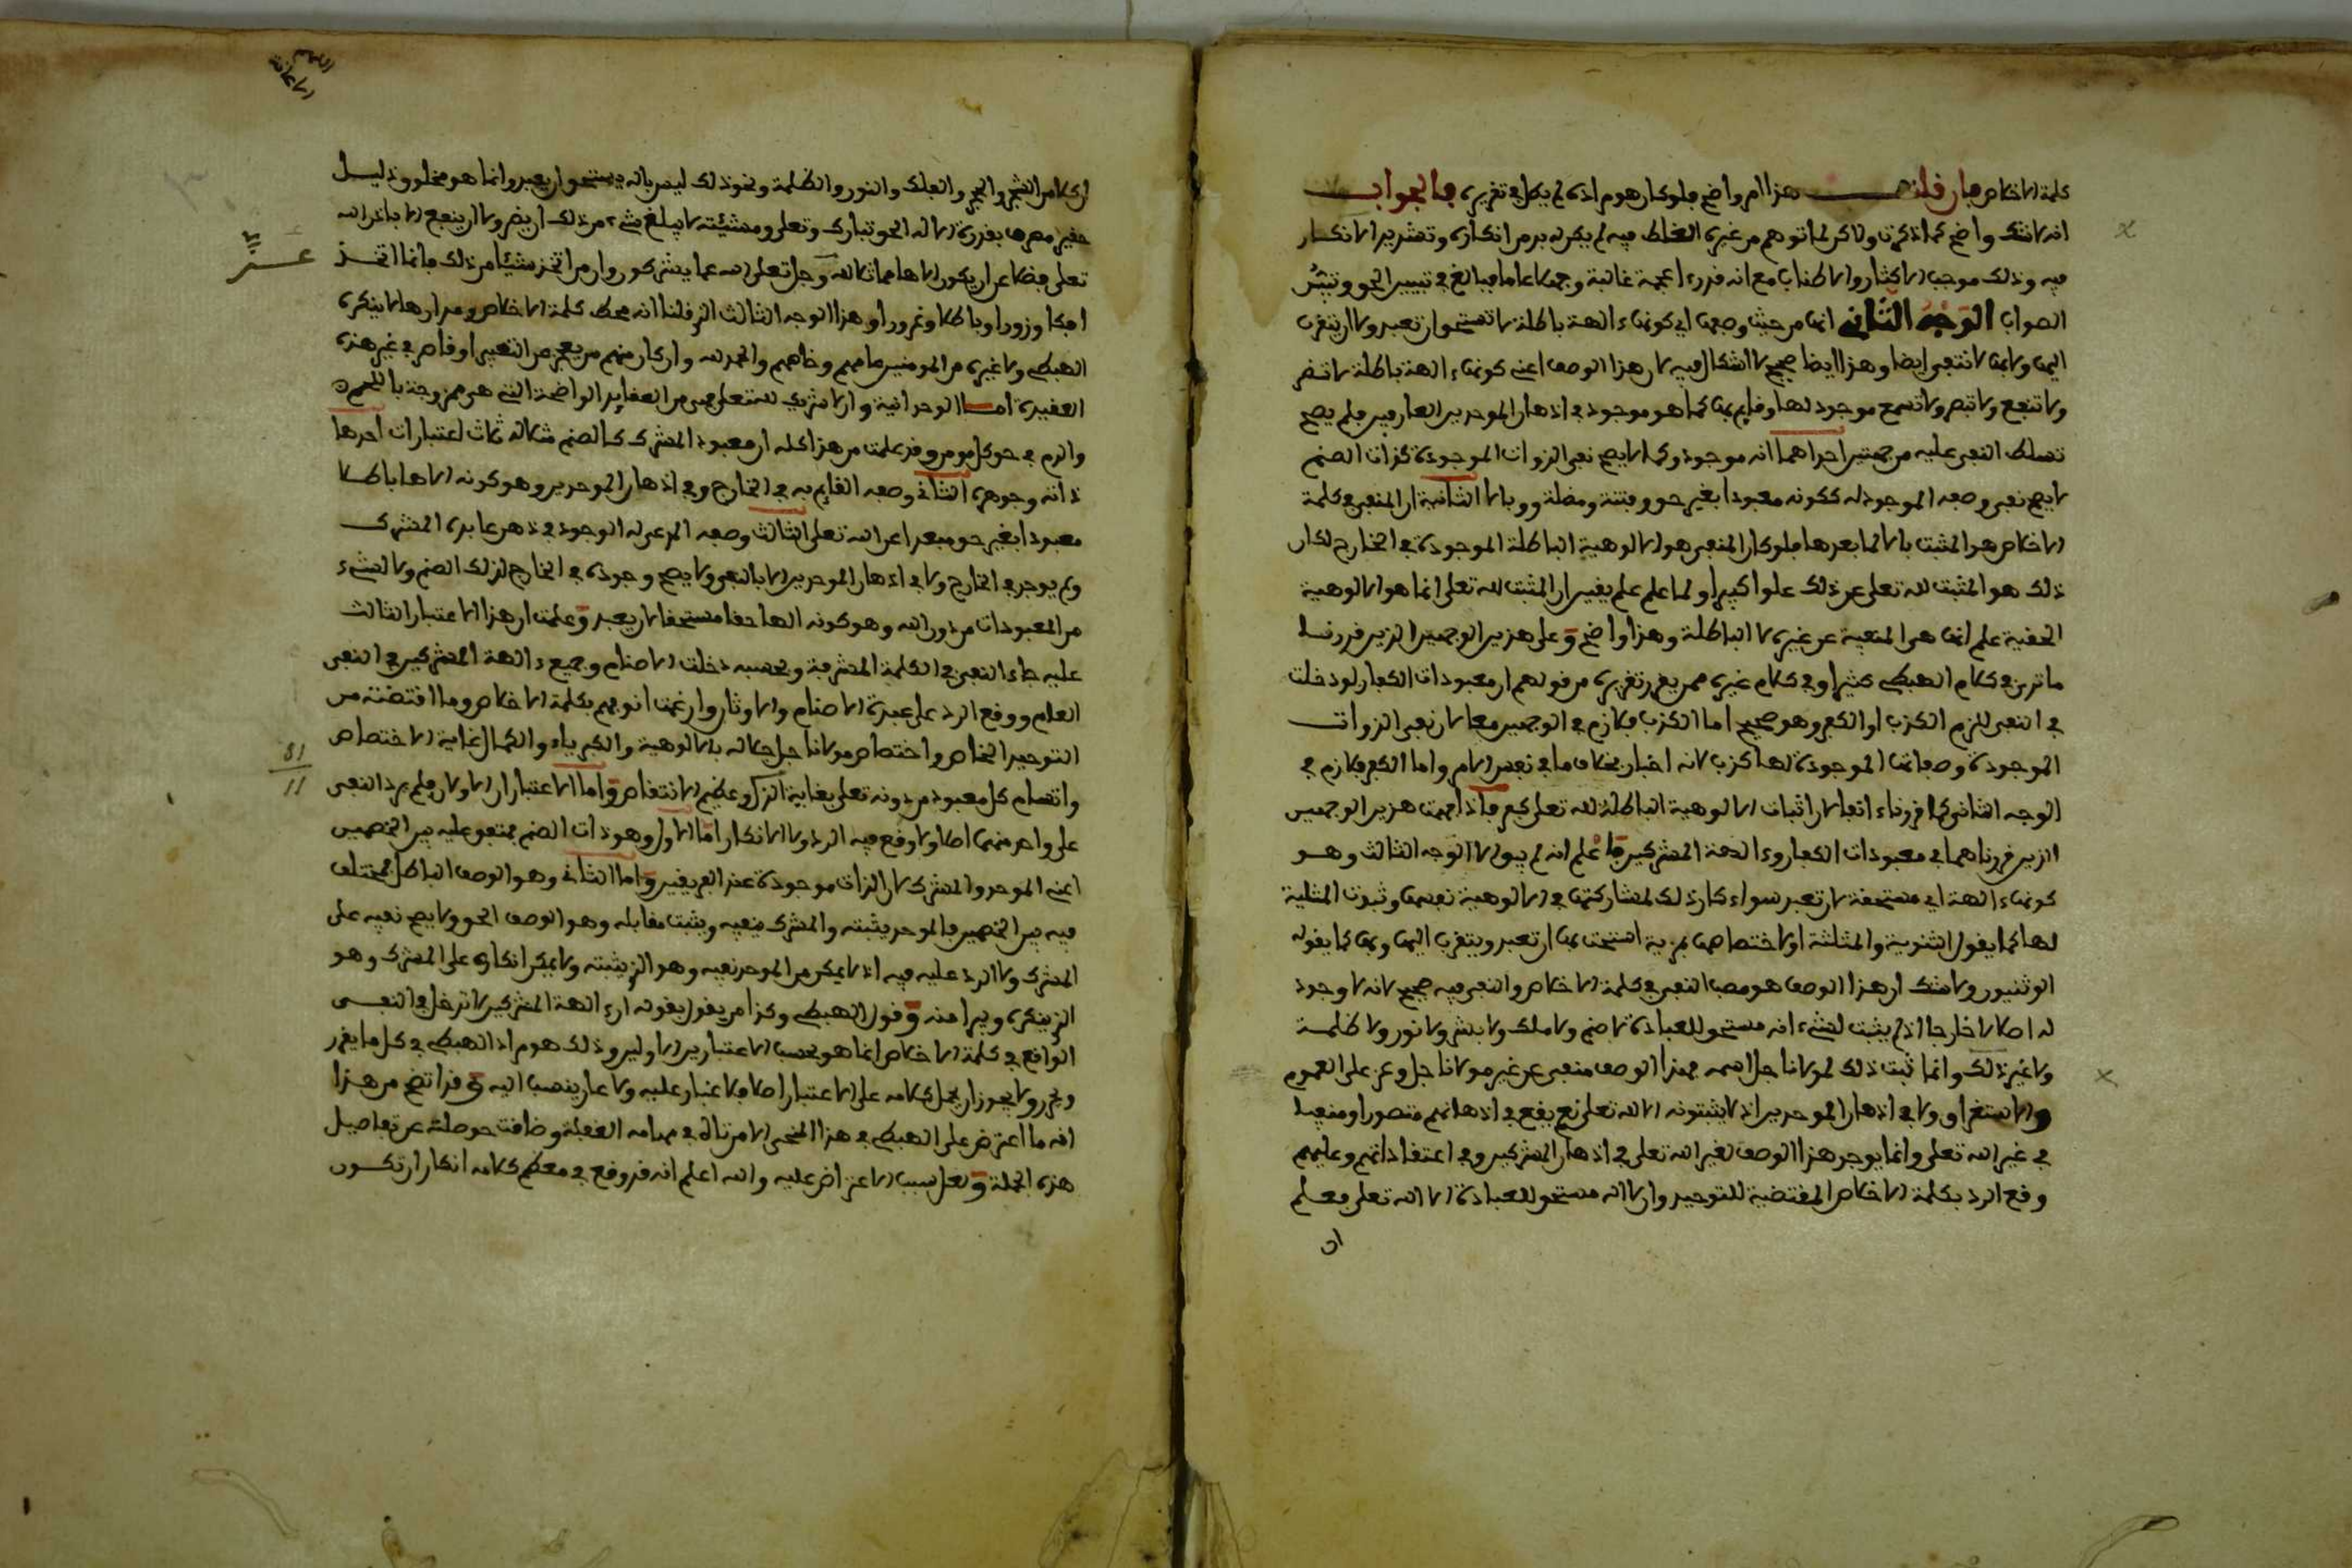 كلمة الاخلاص فان قلت هذا امر واضح فلو كان هو مراده لم يطل في تقريره فالجواب
انه لا شك واضح كما ذكرت ولاكن لما توهم من غيره الغلط فيه لم يكن له بد من انكاره وتشديد الانكار
فيه وذلك موجب الاكثار والاطناب مع انه قد رءا عجمة غالبة وجهلا عاما فبالغ في تبيين الحق
الصواب الوجه الثاني انها من حيث وصفها اي كونها ءالهة باطلة لا تستحق ان تعبد ولا ان يتقرب
اليها ولا بها لا تنتفي ايضا وهذا ايضا صحيح لا اشكال فيه لان هذا الوصف اعني كونها ءالهة باطلة لا تضر
ولا تنفع ولا تبصر ولا تسمع موجود لها وقايم بها كما هو موجود في اذهان الموحدين العارفين فلم يصح
تسلط النفي عليه من جهتين احداهما انه موجود وكما لا يصح نفي الذوات الموجودة كذات الصنم
لا يصح نفي وصفه الموجود له ككونه معبودا بغير حق وفتنة ومضلة ووبالا الثانية ان المنفي في كلمة
الاخلاص هو المثبت بالا لما بعدها فلو كان المنفي هو الالوهية الباطلة الموجودة في الخارج لكان
ذلك هو المثبت لله تعلى عن ذلك علوا كبيرا ولما علم علم يقين ان المثبت لله تعلى انما هو الالوهية
الحقية علم انها هي المنفية عن غيره لا الباطلة وهذا واضح وعلى هذين الوجهين الذين قررنا
ما ترى في كلام الهبطي كثيرا وفي كلام غيره ممن يقرر تقريره من قولهم ان معبودات الكفار لو دخلت
في النفي للزم الكذب او الكفر وهو صحيح اما الكذب فلازم في الوجهين معا لان نفي الذوات
الموجودة وصفاتها الموجودة لها كذب لانه اخبار بخلاف ما في نفس الامر واما الكفر فلازم في
الوجه الثاني كما قررناه ءانفا لان اثبات الالوهية الباطلة لله تعلى كفر فاذا فهمت هذين الوجهين
الذين قررناهما في معبودات الكفار وءالهة المشركين فاعلم انه لم يبق الا الوجه الثالث وهو
كونها ءالهة اي مستحقة لان تعبد سواء كان ذلك لمشاركتها في الالوهية نفسها وثبوت المثلية
لها كما يقول الثنوية والمثلثة او لاختصاصها بمزية استحقت بها ان تعبد ويتقرب اليها وبها كما يقوله
الوثنيون ولا شك ان هذا الوصف هو مصب النفي في كلمة الاخلاص والنفي فيه صحيح لانه لا وجود
له اصلا لا خارجا اذ لم يثبت لشيء انه مستحق للعبادة لا صنم ولا ملك ولا بشر ولا نور ولا ظلمة
ولا غير ذلك وانما ثبت ذلك لمولانا جل اسمه فهذا الوصف منفي عن غير مولانا جل وعز على العموم
والاستغراق ولا في اذهان الموحدين اذ لا يثبتونه الا لله تعلى نعم يقع في اذهانهم متصورا ومنفيا
في غير الله تعلى وانما يوجد هذا الوصف لغير الله تعلى في اذهان المشركين وفي اعتقاداتهم وعليهم
وقع الرد بكلمة الاخلاص المقتضية للتوحيد وان لا اله مستحق للعبادة الا الله تعلى فعلم
ان
ان كلا من الشجر والحجر والفلك والنور والظلمة ونحو ذلك ليس باله يستحق ان يعبد وانما هو مخلوق ذليل
حقير مصرف بقدرة الاله الحق تبارك وتعلى ومشيئته لا يبلغ شيء من ذلك ان يضر ولا ان ينفع الا باذن الله
تعلى فضلا عن ان يكون الاها مماثلا لله وجل تعلى الله عما يشركون وان من اتخذ شيئا من ذلك فانما اتخذ
افكا وزورا وباطلا وغرورا وهذا الوجه الثالث الذي قلنا انه محط كلمة الاخلاص ومدارها لا ينكره
الهبطي ولا غيره من المومنين عامهم وخاصهم والحمد لله وان كان منهم من يعجز عن التعبير او قاصر في غير هذه
العقيدة امسا الوحدانية وان لا شريك لله تعلى فهي من العقايد الواضحة التي هي ممزوجة باللحم
والدم في حق كل مومن وقد علمت من هذا كله ان معبود المشرك كالصنم مثلا له ثلاث اعتبارات احدها
ذاته وجوهره الثاني وصفه القايم به في الخارج وفي اذهان الموحدين وهو كونه الاها باطلا
معبودا بغير حق مبعدا عن الله تعلى الثالث وصفه المدعى له الوجود في ذهن عابده المشرك
ولم يوجد في الخارج ولا في اذهان الموحدين الا بالنفي ولا يصح وجوده في الخارج لذلك الصنم ولا لشيء
من المعبودات من دون الله وهو كونه الها حقا مستحقا لان يعبد وعلمت ان هذا الاعتبار الثالث
عليه جاء النفي في الكلمة المشرفة وبحسبه دخلت الاصنام وجميع ءالهة المشركين في النفي
العام ووقع الرد على عبدة الاصنام والاوثان وارغمت انوفهم بكلمة الاخلاص وما اقتضته من
التوحيد الخاص واختصاص مولانا جل جلاله بالالوهية والكبرياء والكمال غاية الاختصاص
واتسام كل معبود من دونه تعلى بغاية الذل وعظيم الانتقاص واما الاعتباران الاولان فلم يرد النفي
على واحد منهما اصلا ولا وقع فيه الرد ولا الانكار اما الاول وهو ذات الصنم فمتفق عليه بين الخصمين
اعني الموحد والمشرك لان الذات موجودة عند الفريقين واما الثاني وهو الوصف الباطل فمختلف
فيه بين الخصمين فالموحد يثبته والمشرك ينفيه ويثبت مقابله وهو الوصف الحق ولا يصح نفيه على
المشرك ولا الرد عليه فيه اذ لا يمكن من الموحد نفيه وهو الذي يثبته ولا يمكن انكاره على المشرك وهو
الذي ينكره ويبرا منه وقول الهبطي وكذا من يقول بقوله ان ءالهة المشركين لا تدخل في النفي
الواقع في كلمة الاخلاص انما هو بحسب الاعتبارين الاولين وذلك هو مراد الهبطي في كل ما يقرر
ويحرر ولا يجوز ان يحمل كلامه على الاعتبار اصلا فلا غبار عليه ولا عار ينسب اليه وقد اتضح من هذا
انه ما اعترض على الهبطي في هذا المنحى الا من تاه في مهامه الغفلة وضاقت حوصلته عن تفاصيل
هذه الجملة ولعل سبب الاعتراض عليه والله اعلم انه قد وقع في معظم كلامه انكار ان تكون
81
11